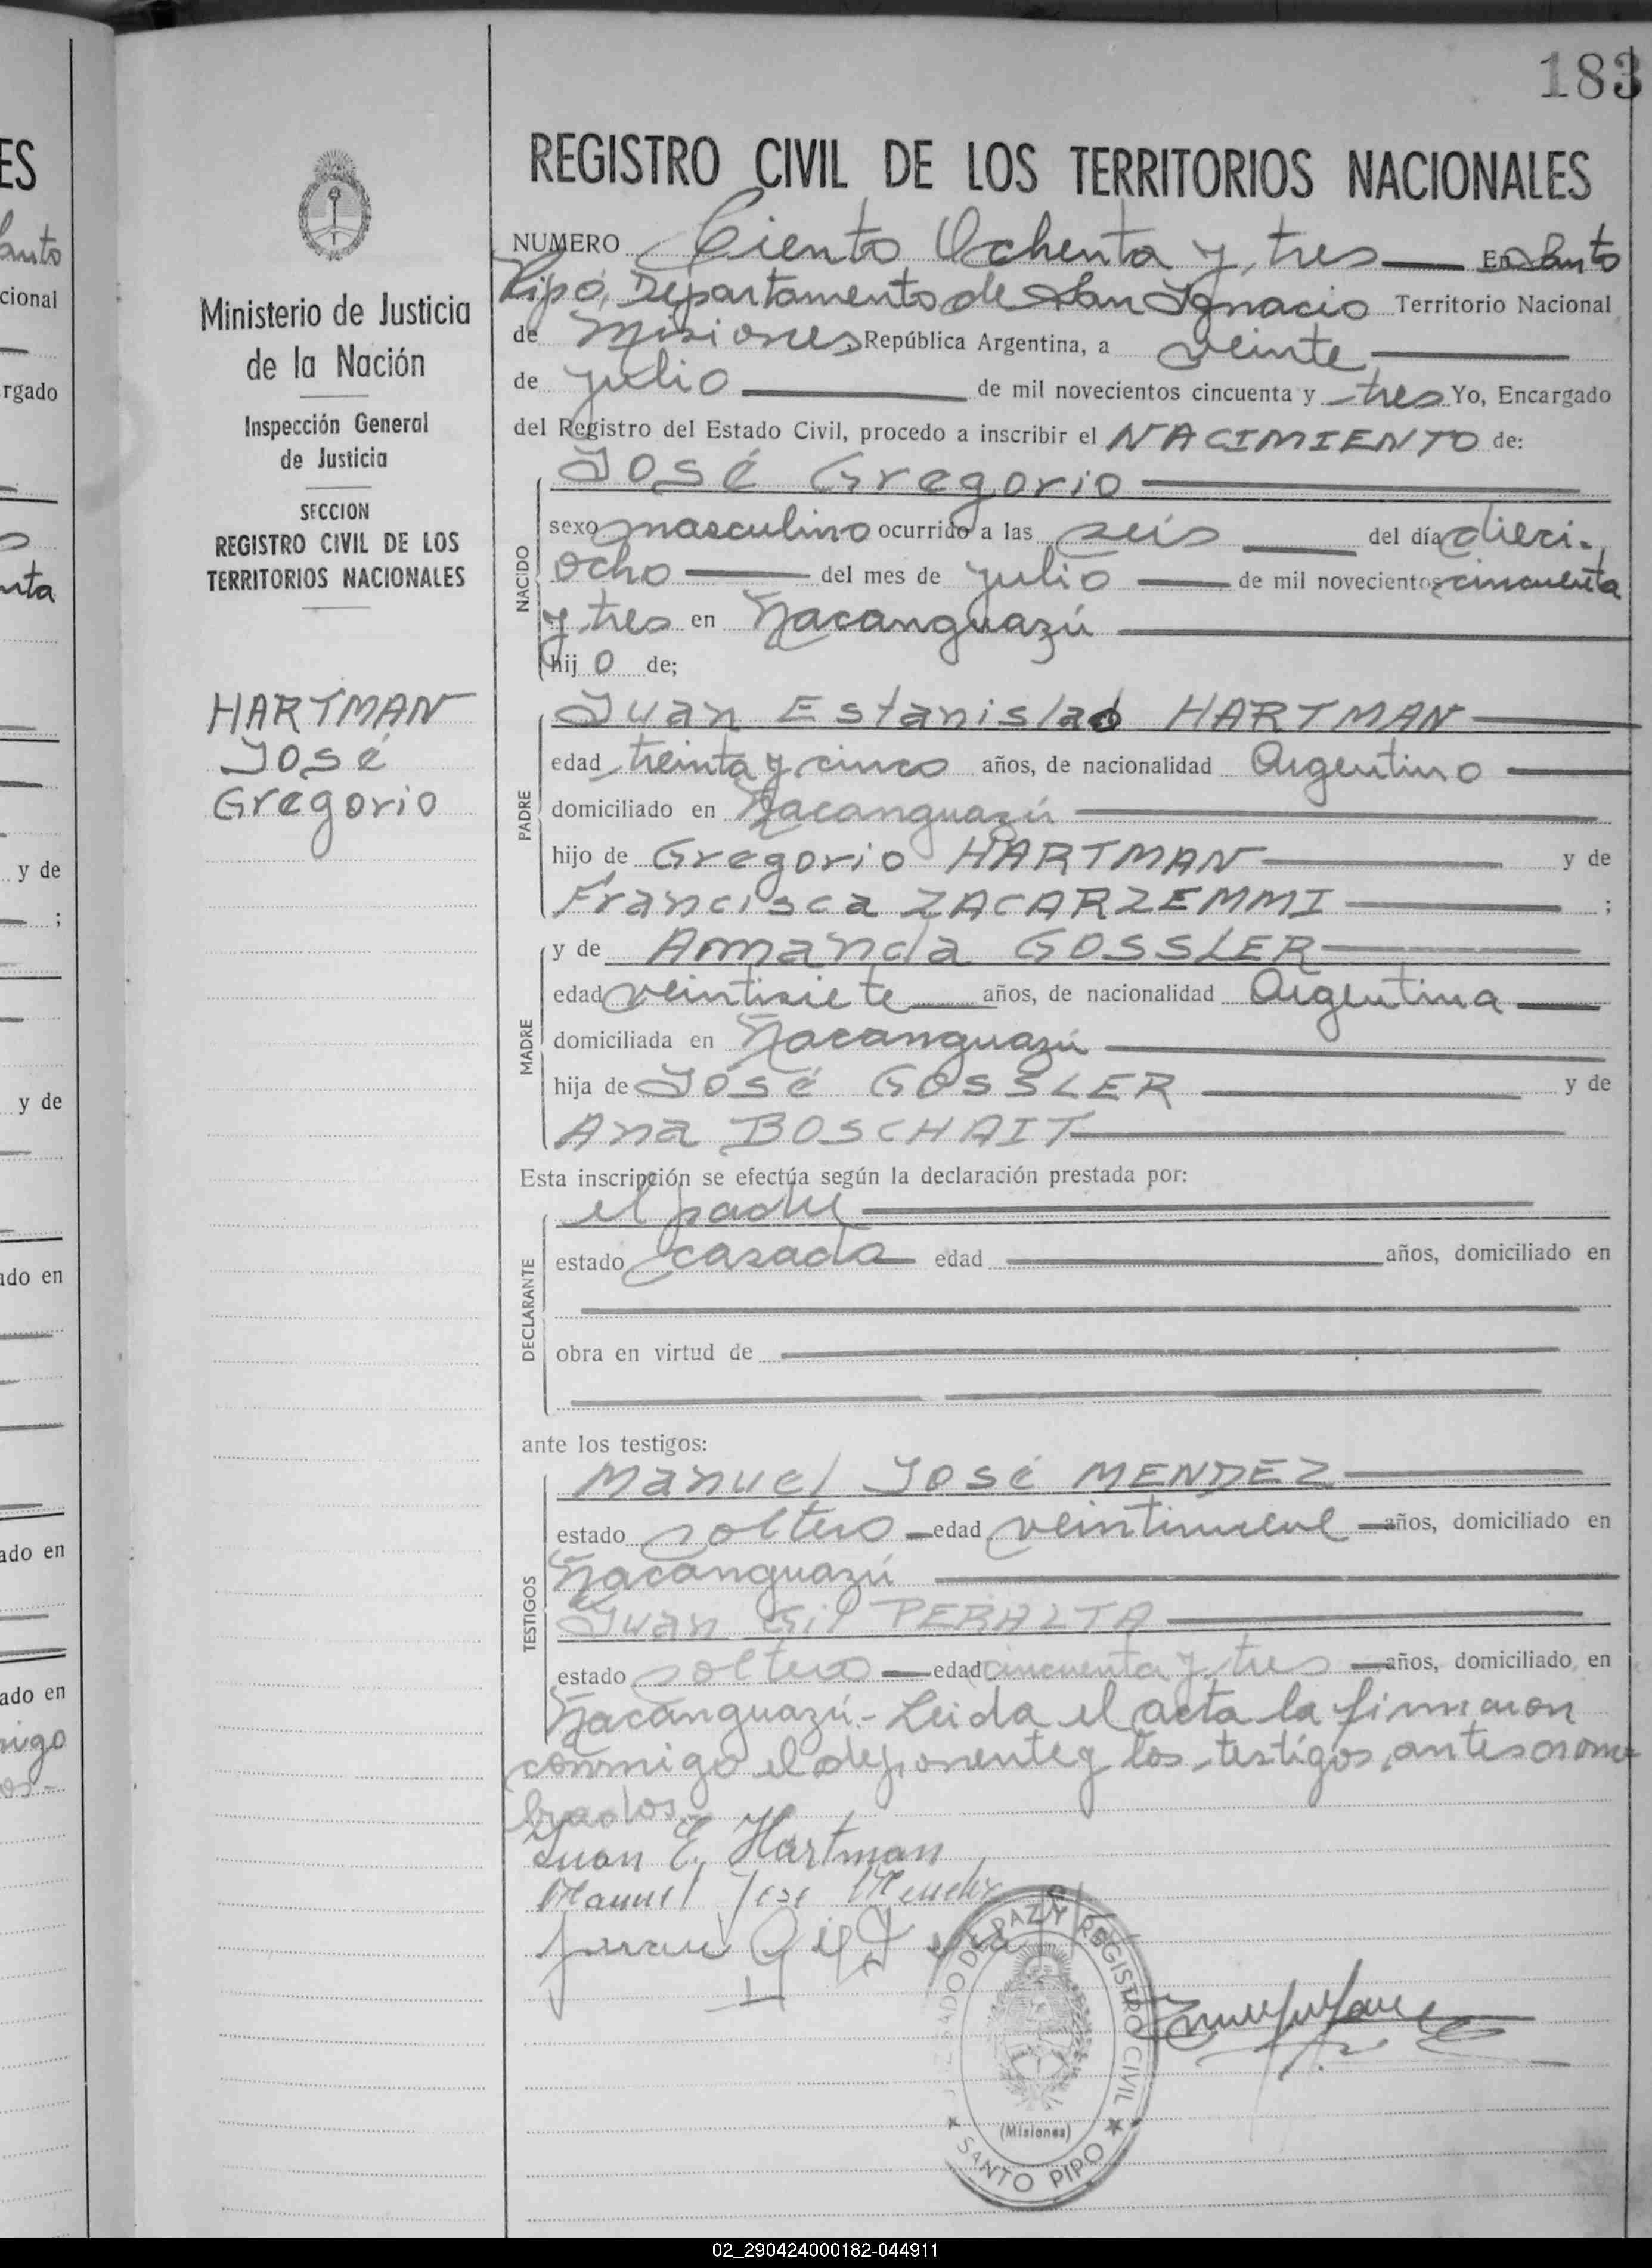 183
REGISTRO CIVIL DE LOS TERRITORIOS NACIONALES
NUMERO Ciento Ochenta y tres En Santo
Pipó, Departamento de San Ignacio Territorio Nacional
de Misiones, República Argentina, a veinte
de julio de mil novecientos cincuenta y tres Yo, Encargado
del Registro del Estado Civil, procedo a inscribir el NACIMIENTO de:
NACIDO
José Gregorio
sexo masculino ocurrido a las seis del día dieci-
ocho del mes de julio de mil novecientos cincuenta
y tres en Ñacanguazú
hij o de;
PADRE
Juan Estanislao HARTMAN
edad treinta y cinco años, de nacionalidad Argentino
domiciliado en Ñacanguazú
hijo de Gregorio HARTMAN y de
Francisca ZACARZEMMI ;
MADRE
y de Amanda GOSSLER
edad veintisiete años, de nacionalidad Argentina
domiciliada en Ñacanguazú
hija de José GOSSLER y de
Ana BOSCHAIT
Esta inscripción se efectúa según la declaración prestada por:
DECLARANTE
el padre
estado casada edad años, domiciliado en
obra en virtud de
ante los testigos:
TESTIGOS
Manuel José MENDEZ
estado soltero edad veintinueve años, domiciliado en
Ñacanguazú
Juan Gil PERALTA
estado soltero edad cincuenta y tres años, domiciliado en
Ñacanguazú.- Leida el acta la firmaron
conmigo el deponente y los testigos antes nom-
brados.-
Juan E. Hartman
Manuel Jose Mendez
Juan Gil
JUZGADO DE PAZ Y REGISTRO CIVIL
(Misiones)
★ SANTO PIPO ★
Ministerio de Justicia
de la Nación
Inspección General
de Justicia
SECCION
REGISTRO CIVIL DE LOS
TERRITORIOS NACIONALES
HARTMAN
José
Gregorio
ES
anto
cional
rgado
nta
y de
;
y de
ado en
ado en
ado en
migo
os.-
02_290424000182-044911